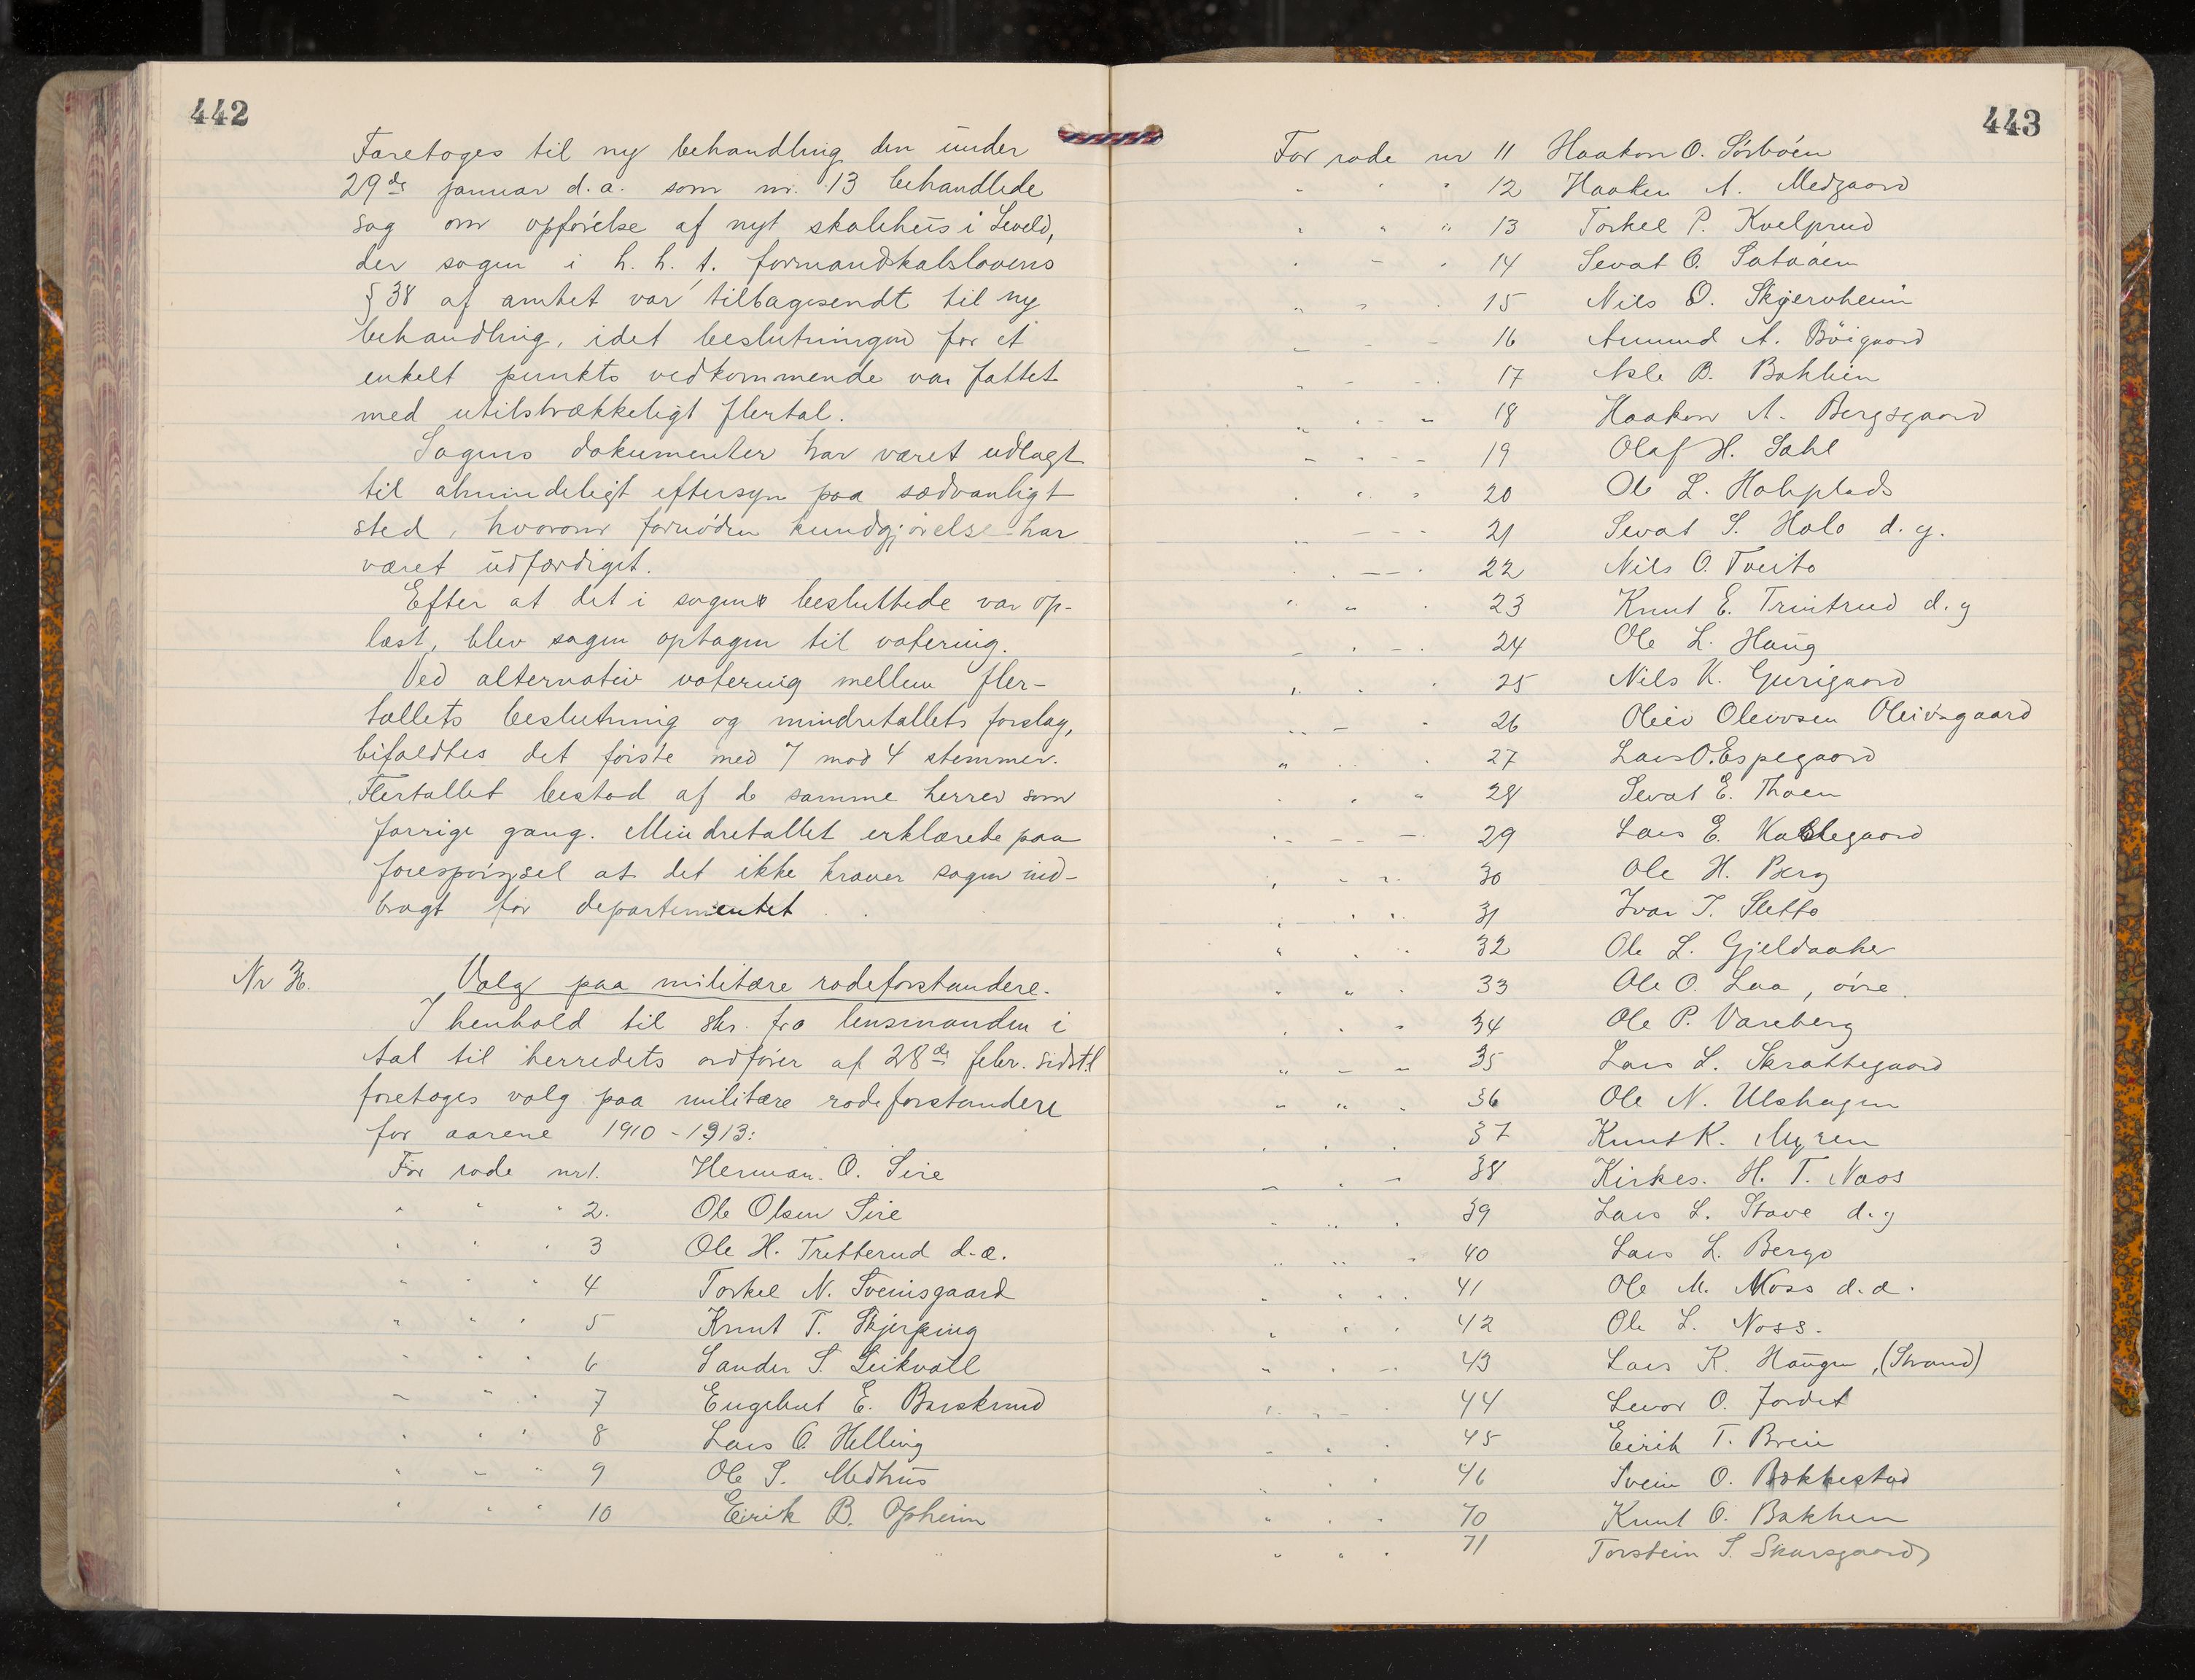 442
Foretoges til ny behandling den under
29de januar d.a. som nr. 13 behandlede
sag om opførelse af nyt skolehus i Leveld,
der sagen i h. h. t. formandskabslovens
§ 38 af amtet var tilbagesendt til ny
behandling, idet beslutningen for et
enkelt punkts vedkommende var fattet
med utilstrækkeligt flertal.
Sagens dokumenter har været udlagt
til almindeligt eftersyn paa sædvanligt
sted, hvorom fornøden kundgjørelse har
været udfærdiget.
Efter at det i sagens besluttede var op-
læst, blev sagen optagen til votering.
Ved alternativ votering mellem fler-
tallets beslutning og mindretallets forslag,
bifaldtes det første med 7 mod 4 stemmer.
Flertallet bestod af de samme herrer som
forrige gang. Mindretallet erklærede paa
forespørgsel at det ikke kræver sagen ind-
bragt for departementet.
Nr
Valg paa militære rodeforstandere.
I henhold til skr. fra lensmanden i
Aal til herredets ordfører af 28de febr. sidstl.
foretoges valg paa militære rodeforstandere
for aarene 1910-1913:
For rode nr 1. Herman O. Sire
" " " 2. Ole Olsen Sire
" " " 3 Ole H. Tretterud d.æ.
" " " 4 Torkel N. Sveinsgaard
" " " 5 Knut T. Skjerping
" " " 6 Sander S. Leikvoll
" " " 7 Engebret E. Barskrud
" " " 8 Lars O. Helling
" " " 9 Ole S. Medhus
" " " 10 Eirik B. Opheim
443
For rode nr 11 Haakon O. Sørbøen
" " " 12 Haaken A. Medgaard
" " " 13 Torkel P. Kvelprud
" " " 14 Sevat O. Sataøen
" " " 15 Nils O. Skjervheim
" " " 16 Amund A. Bøigaard
" " " 17 Asle B. Bakken
" " " 18 Haakon A. Bergsgaard
" " " 19 Olaf H. Dahl
" " " 20 Ole L. Holeplads
" " " 21 Sevat S. Holo d. y.
" " " 22 Nils O. Tveito
" " " 23 Knut E. Trintrud d. y
" " " 24 Ole L. Haug
" " " 25 Nils K. Gurigaard
" " " 26 Oleiv Oleivsen Oleivsgaard
" " " 27 Lars O. Espegaard
" " " 28 Sevat E. Thoen
" " " 29 Lars E. Kaslegaard
" " " 30 Ole H. Berg
" " " 31 Ivar T. Sletto
" " " 32 Ole L. Gjeldaaker
" " " 33 Ole O. Laa, øvre
" " " 34 Ole P. Vareberg
" " " 35 Lars L. Skrattegaard
" " " 36 Ole N. Ulshagen
" " " 37 Knut K. Myren
" " " 38 Kirkes. H. T. Noss
" " " 39 Lars L. Stave d. y
" " " 40 Lars L. Bergo
" " " 41 Ole M. Noss d. æ.
" " " 42 Ole L. Noss.
" " " 43 Lars K. Haugen, (Strand)
" " " 44 Levor O. Jordet
" " " 45 Eirik T. Brein
" " " 46 Svein O. Bækkestad
" " " 70 Knut O. Bakken
" " " 71 Torstein S. Skarsgaard